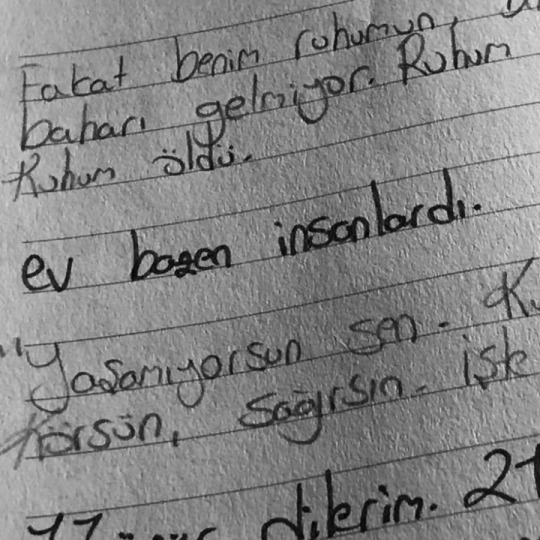 Fakat benim ruhumun,
baharı gelmiyor. Ruhum
Ruhum öldü.
ev bazen insanlardı.
"Yaşamıyorsun sen. K
körsün, sağırsın. işte
dilerim. 21